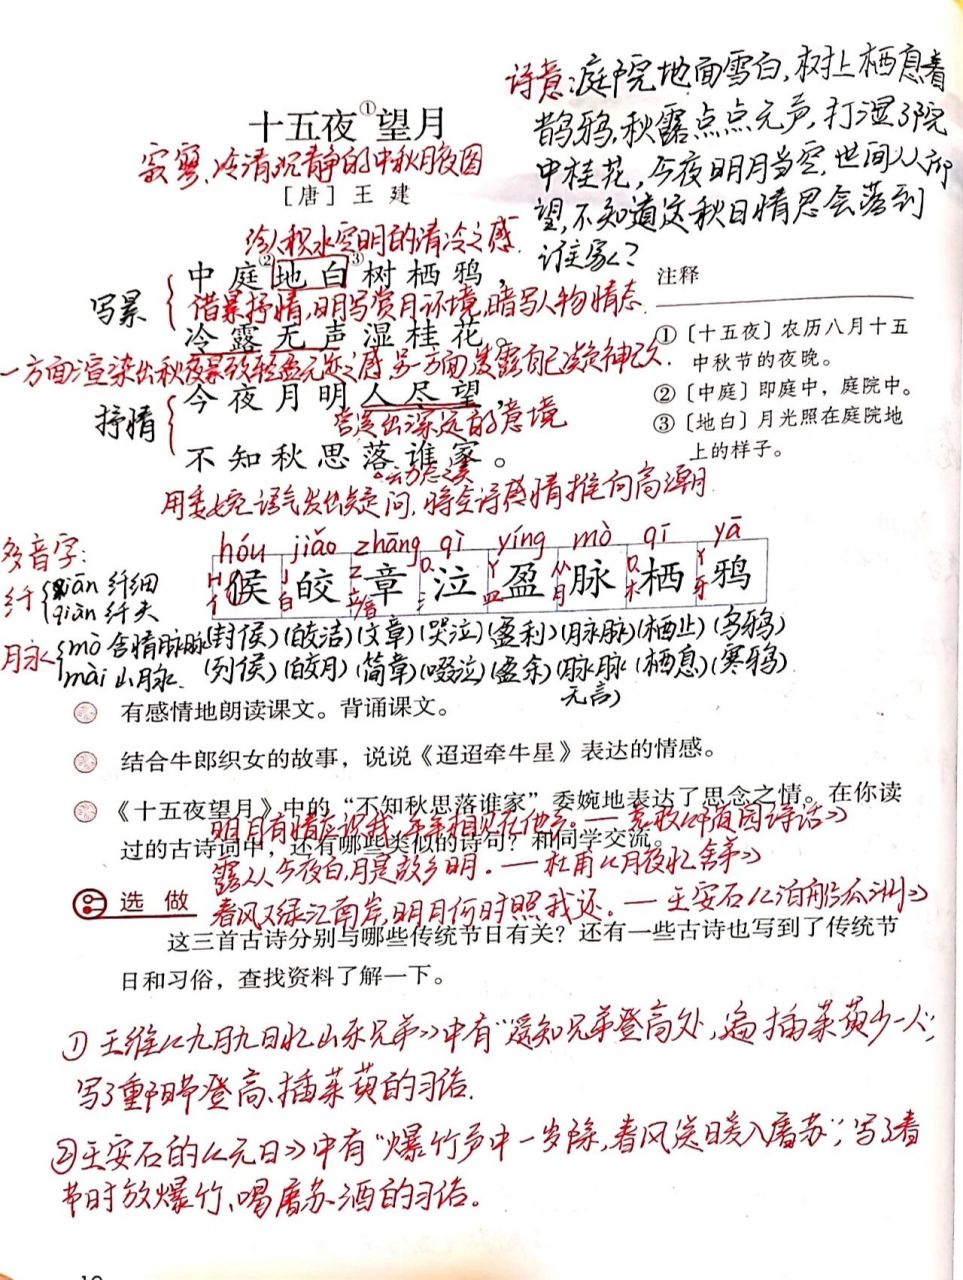 诗意:庭院地面雪白,树上栖息着
鹊鸦,秋露点点无声,打湿了院
中桂花,今夜明月当空,世间人仰
望,不知道这秋日情思会落到
谁家?
十五夜①望月
寂寥、冷清沉静的中秋月夜图
［唐］王 建
给人积水空明的清冷之感.
中庭②地白③树栖鸦,
写景
借景抒情,明写赏月环境,暗写人物情态.
冷露无声湿桂花。
一方面渲染出秋夜景致轻盈无迹之感 另一方面透露自己凝神已久.
今夜月明人尽望,
抒情
营造出深远的意境
不知秋思落谁家。
动态之美
用委婉语气发出疑问,将全诗感情推向高潮.
注释
①〔十五夜〕农历八月十五
中秋节的夜晚。
②〔中庭〕即庭中,庭院中。
③〔地白〕月光照在庭院地
上的样子。
多音字:
纤 xiān 纤细
qiàn 纤夫
脉 mò 含情脉脉
mài 山脉.
hóu jiǎo zhāng qì yíng mò qī yā
侯 皎 章 泣 盈 脉 栖 鸦
(封侯)(皎洁)(文章)(哭泣)(盈利)(脉脉)(栖止)(乌鸦)
(列侯)(皎月)(简章)(啜泣)(盈余)(脉脉(栖息)(寒鸦)
无言)
有感情地朗读课文。背诵课文。
结合牛郎织女的故事，说说《迢迢牵牛星》表达的情感。
《十五夜望月》中的“不知秋思落谁家”委婉地表达了思念之情。在你读
明月有情应识我,年年相见在他乡。—袁枚《随园诗话》
过的古诗词中，还有哪些类似的诗句？和同学交流。
露从今夜白,月是故乡明。—杜甫《月夜忆舍弟》
选 做
春风又绿江南岸,明月何时照我还。—王安石《泊船瓜洲》
这三首古诗分别与哪些传统节日有关？还有一些古诗也写到了传统节
日和习俗，查找资料了解一下。
①王维《九月九日忆山东兄弟》中有“遥知兄弟登高处,遍插茱萸少一人”,
写了重阳节登高、插茱萸的习俗.
②王安石的《元日》中有“爆竹声中一岁除,春风送暖入屠苏”,写了春
节时放爆竹、喝屠苏酒的习俗。